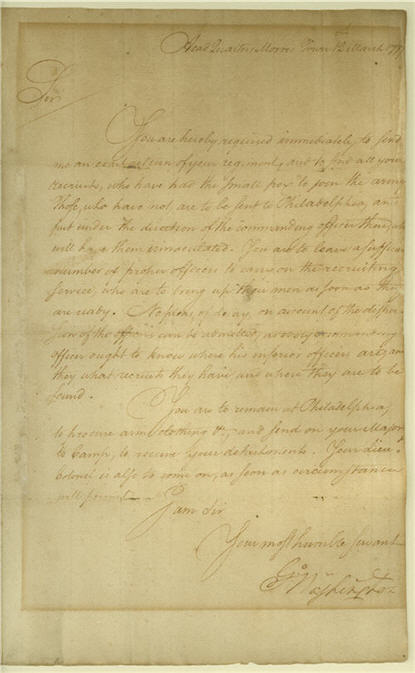 Head Quarters Morris Town 12 March 1777
Sir
You are hereby required immediately to send
me an exact return of your regiment, and to send all your
recruits, who have had the small pox to join the army.
Those, who have not, are to be sent to Philadelphia, and
put under the direction of the commanding officer there, who
will have them innoculated. You are to leave a sufficient
number of proper officers to carry on the recruiting
service, who are to bring up their men as soon as they
are ready. No pleas, of delay, on account of the disper-
sion of the officers can be admitted, as every commanding
officer ought to know where his inferior officers are, and
they what recruits they have and where they are to be
found.
You are to remain at Philadelphia,
to procure arms, clothing &c, and send on your Major
to Camp, to receive your detachments. Your Lieut
Colonel is also to come on, as soon as circumstances
will permit
I am Sir
Your most humble servant
Go Washington